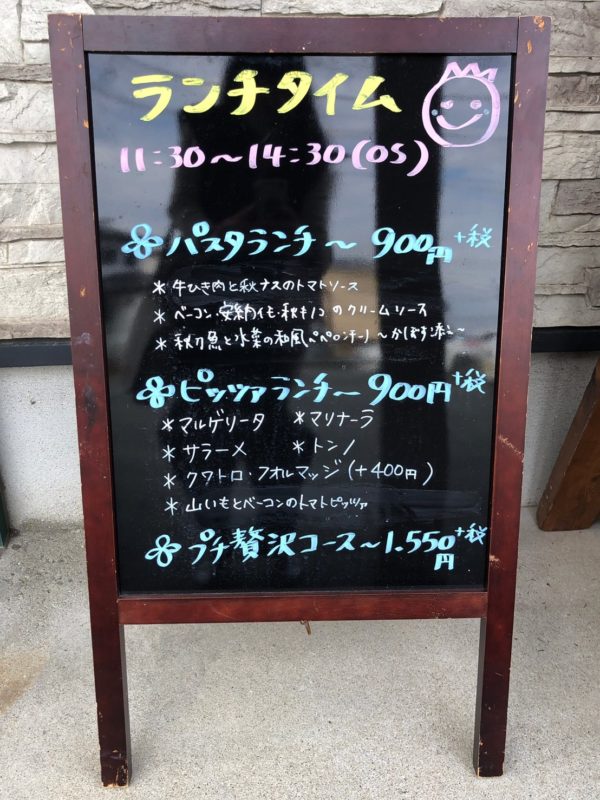 ランチタイム
11:30～14:30(OS)
パスタランチ～900円+税
*牛ひき肉と秋ナスのトマトソース
*ベーコン・安納イモ・秋キノコのクリームソース
*秋刀魚と水菜の和風ペペロンチーノ～かぼす添え～
ピッツァランチ～900円+税
*マルゲリータ *マリナーラ
*サラーメ *トンノ
*クワトロ・フォルマッジ(+400円)
*山いもとベーコンのトマトピッツァ
プチ贅沢コース～1.550円+税